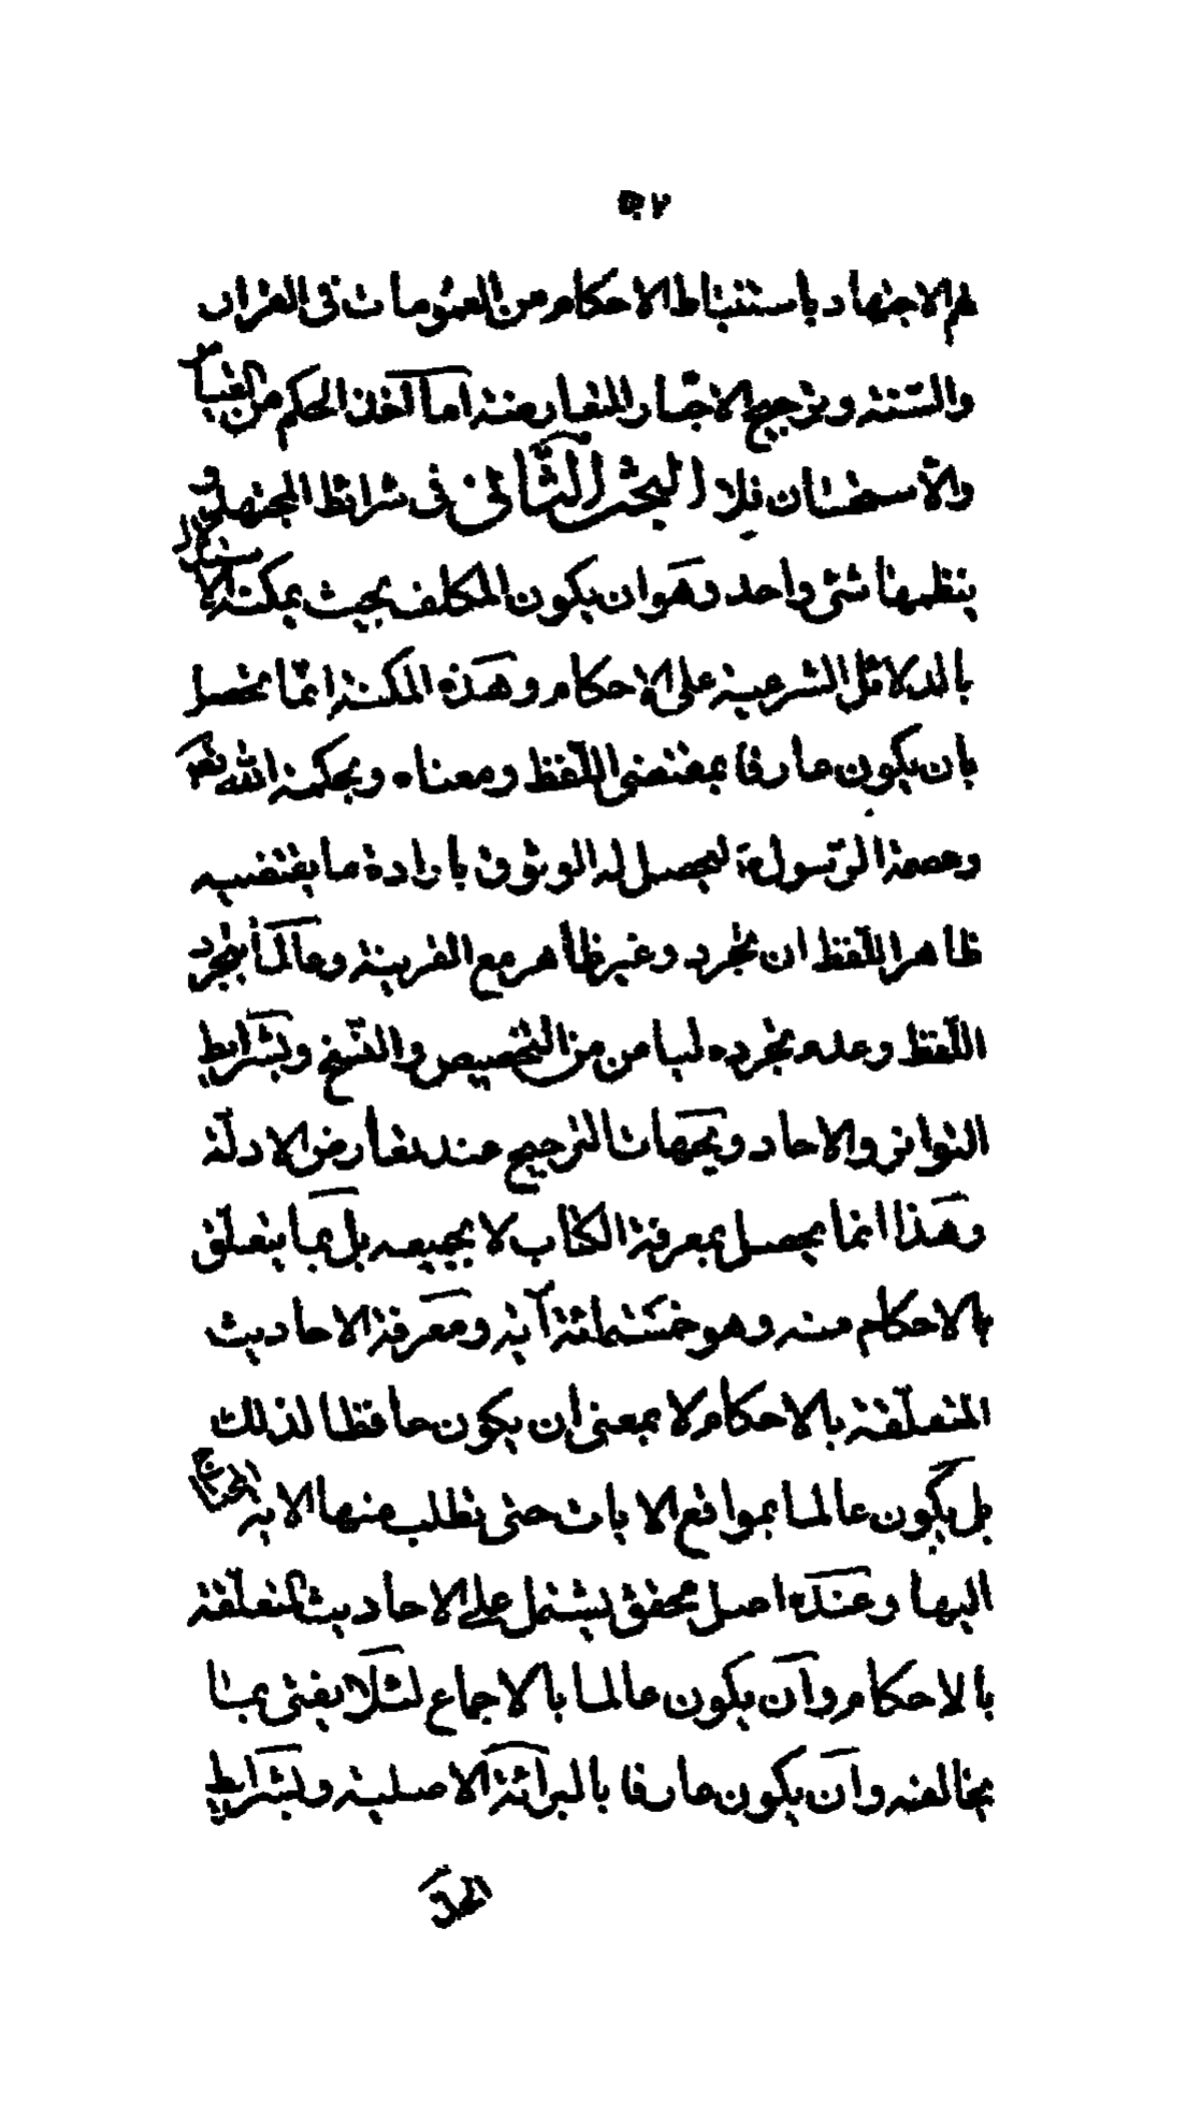 ٥٠٧
لهم الاجتهاد باستنباط الاحكام من العمومات فى القران
والسّنة وترجيح الاخبار المتعارضة امّا آخذ الحكم من القياس
والاستحسان فلا البحث الثّانى فى شرائط المجتهد و
ينظمها شئ واحد وهو ان يكون المكلف بحيث يمكنه الاستدلال
بالدلائل الشرعية على الاحكام وهذه المكنة انمّا تحصل
بان يكون عارفا بمقتضى اللّفظ ومعناه وبحكمة الله تعا
وعصمة الرّسول ع ليحصل له الوثوق بارادة ما يقتضيه
ظاهر اللّفظ ان تجرد وغير ظاهر مع القرينة وعالما بتجرد
اللّفظ وعدم تجرده ليامن من التخصيص والنّسخ وبشرايط
التواتر والاحاد وبجهات الترجيح عند تعارض الادلّة
وهذا انما يحصل بمعرفة الكتاب لا بجميعه بل بما يتعلّق
بالاحكام منه وهو خمسمائة آية ومعرفة الاحاديث
المتعلّقة بالاحكام لا بمعنى ان يكون حافظا لذلك
بل يكون عالما بمواقع الايات حتى يطلب منها الاية المحتاج
اليها وعنده اصل محقق يشتمل على الاحاديث المتعلّقة
بالاحكام وان يكون عالما بالاجماع لئلّا يفتى بما
يخالفه وان يكون عارفا بالبرائة الاصلية وبشرايط
الحدّ